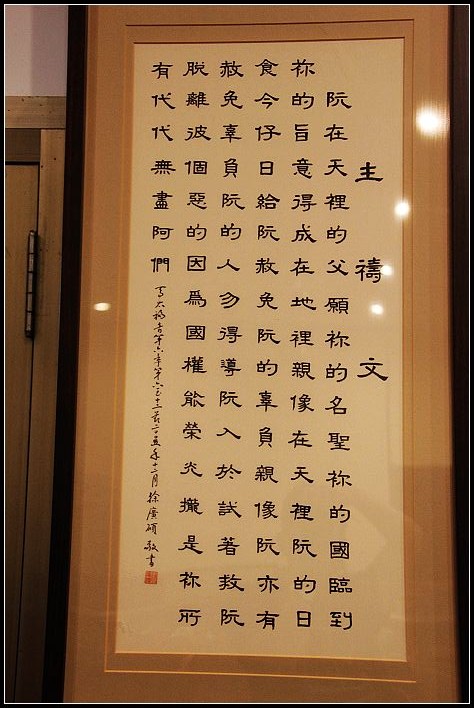 主禱文
阮在天裡的父願祢的名聖祢的國臨到
祢的旨意得成在地裡親像在天裡阮的日
食今仔日給阮赦免阮的辜負親像阮亦有
赦免辜負阮的人勿得導阮入於試著救阮
脫離彼個惡的因爲國權能榮光攏是祢所
有代代無盡阿們
馬太福音第六章第六至十三節 年十二月徐廣碩敬書